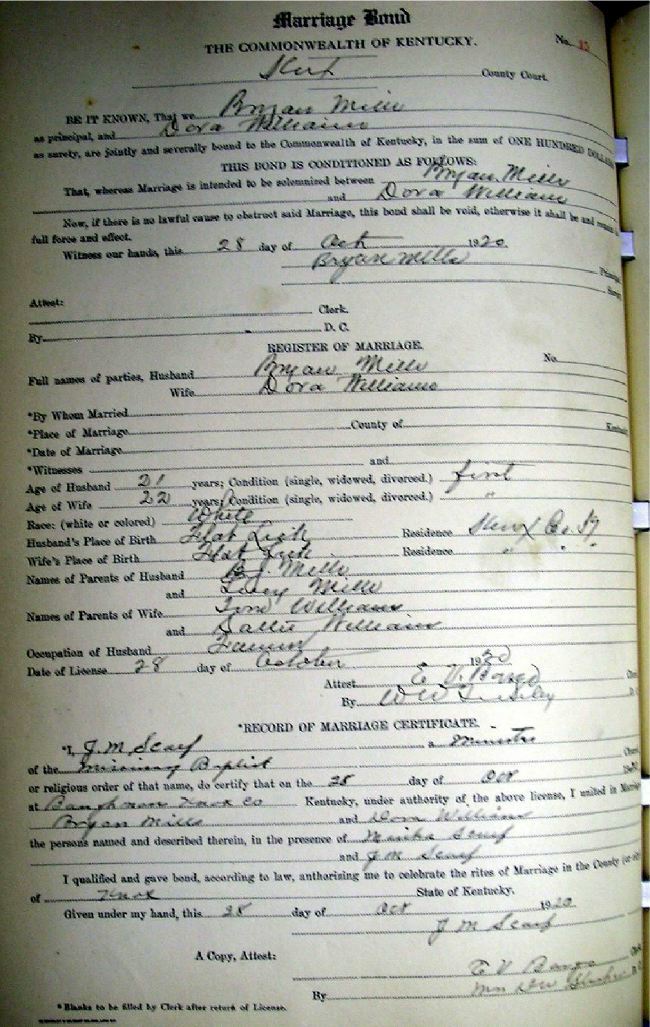 Marriage Bond
THE COMMONWEALTH OF KENTUCKY.
No. 15
County Court.
BE IT KNOWN, That we Bryan Mills
as principal, and Dora Williams
as surety, are jointly and severally bound to the Commonwealth of Kentucky, in the sum of ONE HUNDRED DOLLARS
THIS BOND IS CONDITIONED AS FOLLOWS:
That, whereas Marriage is intended to be solemnized between Bryan Mills
and Dora William
Now, if there is no lawful cause to obstruct said Marriage, this bond shall be void, otherwise it shall be and remain in
full force and effect.
Witness our hands, this 28 day of Oct 1920
Bryan Mills Principal
Surety
Attest:
Clerk.
By D. C.
REGISTER OF MARRIAGE.
Full names of parties, Husband Bryan Mills No.
Wife Dora Williams
*By Whom Married
*Place of Marriage County of Kentucky
*Date of Marriage
*Witnesses and
Age of Husband 21 years; Condition (single, widowed, divorced.) first
Age of Wife 22 years; Condition (single, widowed, divorced.) "
Race: (white or colored) White
Husband's Place of Birth Flat Lick Residence Co Ky
Wife's Place of Birth Flat Lick Residence " " "
Names of Parents of Husband Mills
and Lucy Mills
Names of Parents of Wife Williams
and Sallie William
Occupation of Husband Farmer
Date of License 28 day of October 1920
Attest E V
By W W
*RECORD OF MARRIAGE CERTIFICATE.
*I, J. M. Scarf a Minister
of the Baptist Church
or religious order of that name, do certify that on the 28 day of Oct 1920
at Knox Co Kentucky, under authority of the above license, I united in Marriage
Bryan Mills and Dora Williams
the persons named and described therein, in the presence of Scarf
and J M Scarf
I qualified and gave bond, according to law, authorizing me to celebrate the rites of Marriage in the County (or city)
of Knox State of Kentucky.
Given under my hand, this 28 day of Oct 1920
J M Scarf
A Copy, Attest:
E V
By
*Blanks to be filled by Clerk after return of License.